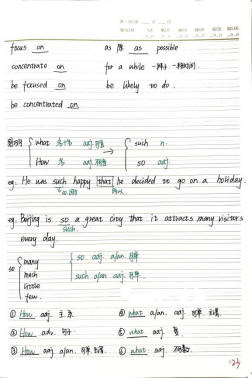 focus on as 原 as possible
concentrate on for a while 一阵儿, 一段时间.
be focused on be likely to do.
be concentrated on
感叹句 { what 多么 adj. 可单 → { such n.
How 多么 adj. 不可 so adj.
eg. He was such happy that he decided to go on a holiday
eg. Beijing is so a great city that it attracts many visitors
such.
every day.
so { many { so adj. a/an 可单
much such a/an adj. 可单.
little
few.
① How adj. 主系 ④ what a/an. adj. 可单 主谓.
② How adv. 句子. ⑤ what adj. 复.
③ How adj a/an. 可单 主谓 ⑥ what. adj. 不可数.